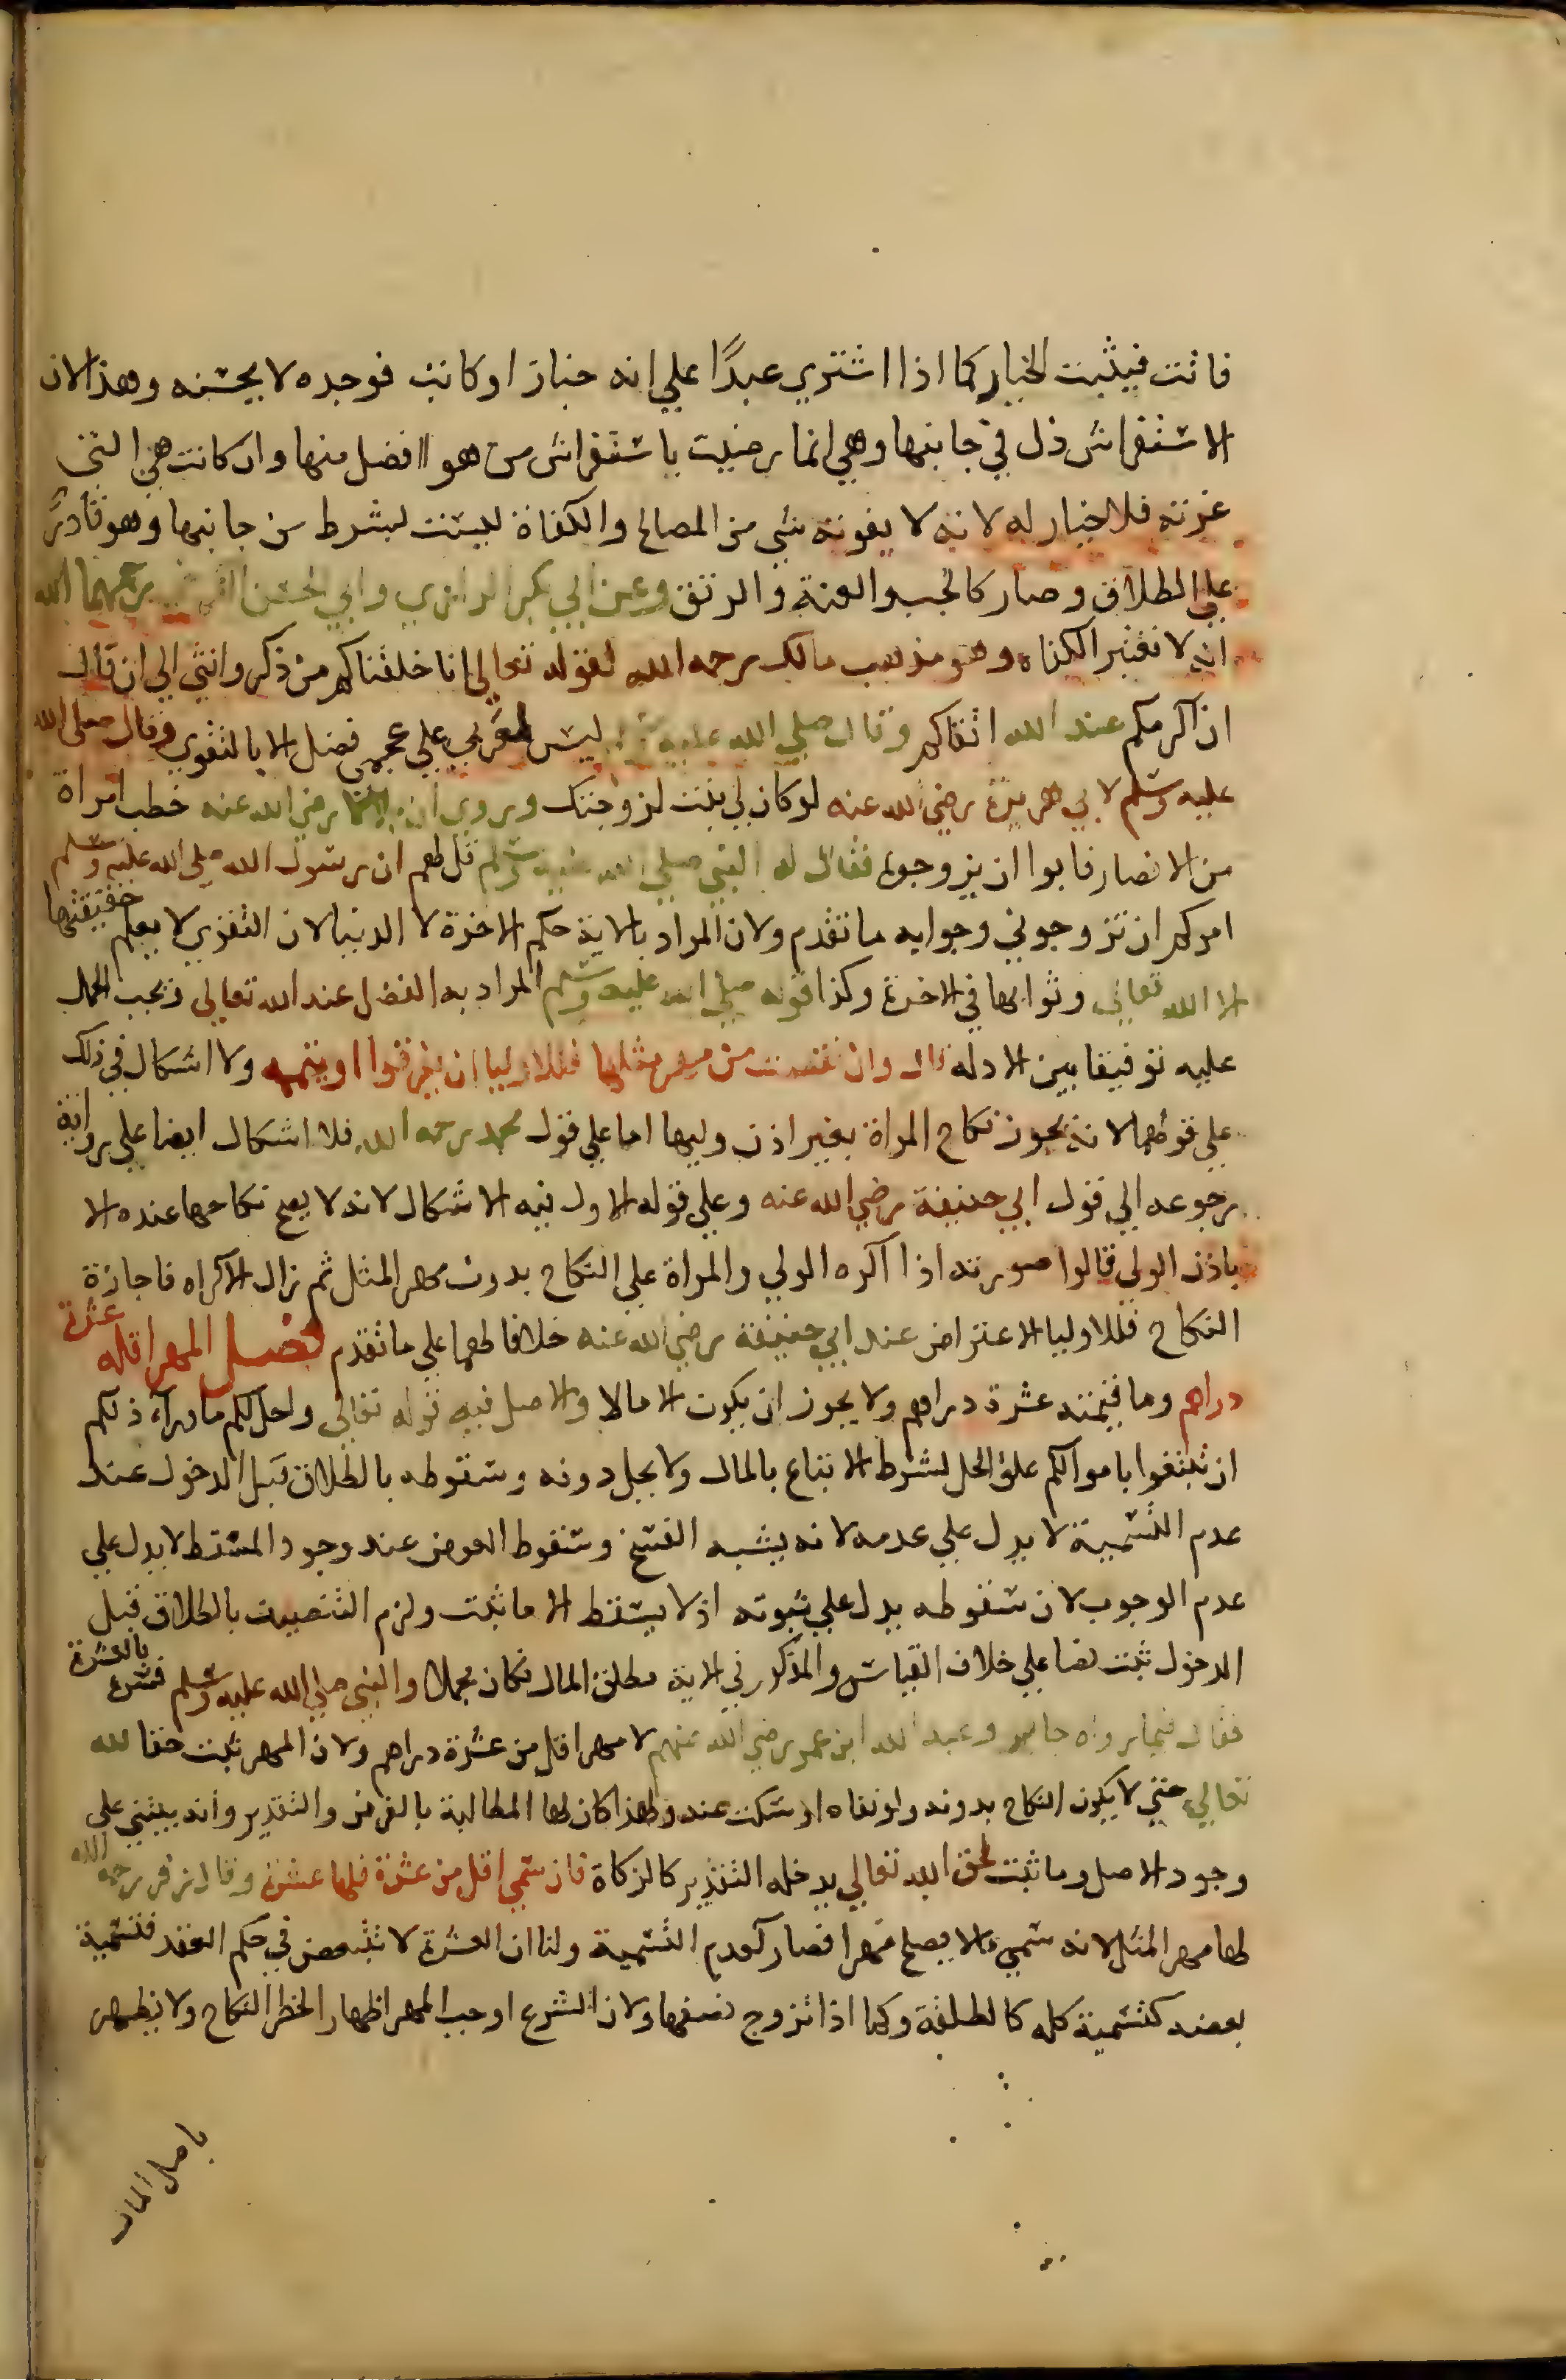 فاثت فيثبت الخيار كما اذا اشتري عبدًا علي انه خباز او كاتب فوجده لا يحسنه وهذا لان
الاستفراش ذل في جانبها وهي انما رضيت باستفراش من هو افضل منها وان كانت هي التي
غرته فلا خيار له لانه لا يفوته شي من المصالح والكفاة ليست بشرط من جانبها وهو قادر
علي الطلاق وصار كالجب والعنة والرتق وعن ابي بكر الرازي وابي الحسن رحمهما الله
انه لا تعتبر الكفاه وهو مذهب مالك رحمه الله لقوله تعالي انا خلقناكم من ذكر وانثي الي ان قال
ان اكرمكم عند الله اتقاكم وقال صلي الله عليه وسلم ليس لعربي علي عجمي فضل الا بالتقوي وقال صلي الله
عليه وسلم لابي هريرة رضي الله عنه لو كان لي بنت لزوجتك وروي ان بلالا رضي الله عنه خطب امراة
من الانصار فابوا ان يزوجوه فقال له النبي صلي الله عليه وسلم قل لهم ان رسول الله صلي الله عليه وسلم
امركم ان تزوجوني وجوابه ما تقدم ولان المراد بالاية حكم الاخرة لا الدنيا لان التقوي لا يعلم حقيقتها
الا الله تعالي وثوابها في الاخرة وكذا قوله صلي الله عليه وسلم المراد به الفضل عند الله تعالي فيجب الحمل
عليه توفيقا بين الادله قال وان نقصت من مهر مثلها فللاوليا ان يفرقوا او يتمه ولا اشكال في ذلك
علي قولهما لانه يجوز نكاح المراة بغير اذن وليها اما علي قول محمد رحمه الله فلا اشكال ايضا علي رواية
رجوعه الي قول ابي حنيفة رضي الله عنه وعلي قوله الاول فيه الاشكال لانه لا يصح نكاحها عنده الا
باذن الولي قالوا صورته اذا اكره الولي والمراة علي النكاح بدون مهر المثل ثم زال الاكراه فاجازة
النكاح فللاوليا الاعتراض عند ابي حنيفة رضي الله عنه خلافا لهما علي ما تقدم فصل المهر اقله عشرة
دراهم وما قيمته عشرة دراهم ولا يجوز ان يكون الا مالا والاصل فيه قوله تعالي واحل لكم ما وراء ذلكم
ان تبتغوا باموالكم علق الحل بشرط الابتغاء بالمال ولا يحل دونه وسقوطه بالطلاق قبل الدخول عند
عدم التسمية لا يدل علي عدمه لانه يشبه الفسخ وسقوط العوض عند وجود المسقط لا يدل علي
عدم الوجوب لان سقوطه يدل علي ثبوته اذ لا يسقط الا ما ثبت ولزم التنصيف بالطلاق قبل
الدخول ثبت نصا علي خلاف القياس والمذكور في الاية مطلق المال فكان مجملا والنبي صلي الله عليه وسلم فسره بالعشرة
فقال فيما رواه جابر وعبد الله ابن عمر رضي الله عنهم لا مهر اقل من عشرة دراهم ولان المهر ثبت حقا لله
تعالي حتي لا يكون النكاح بدونه ولو نفاه او سكت عنه ولهذا كان لها المطالبة بالفرض والتقدير وانه يبتني علي
وجود الاصل وما ثبت لحق الله تعالي يدخله التقدير كالزكاة فان سمي اقل من عشرة فلها عشرة وقال زفر رحمه الله
لها مهر المثل لانه سمي ما لا يصلح مهرا فصار كعدم التسمية ولنا ان العشرة لا تتبعض في حكم العقد فتسمية
بعضه كتسمية كله كالطلقة وكما اذا تزوج نصفها ولان الشرع اوجب المهر اظهار الخطر النكاح ولا يظهر
باصل المال